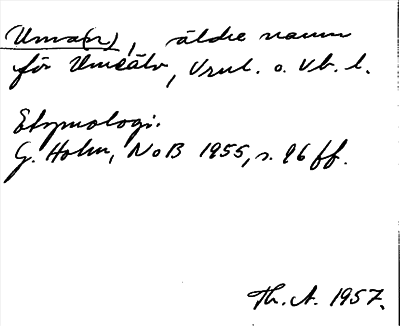 Uma(n), äldre namn
för Umeälv, Vrml. o. Vb. l.
Etymologi.
G. Holm, NoB 1955, s. 96 ff.
Th. A. 1957.